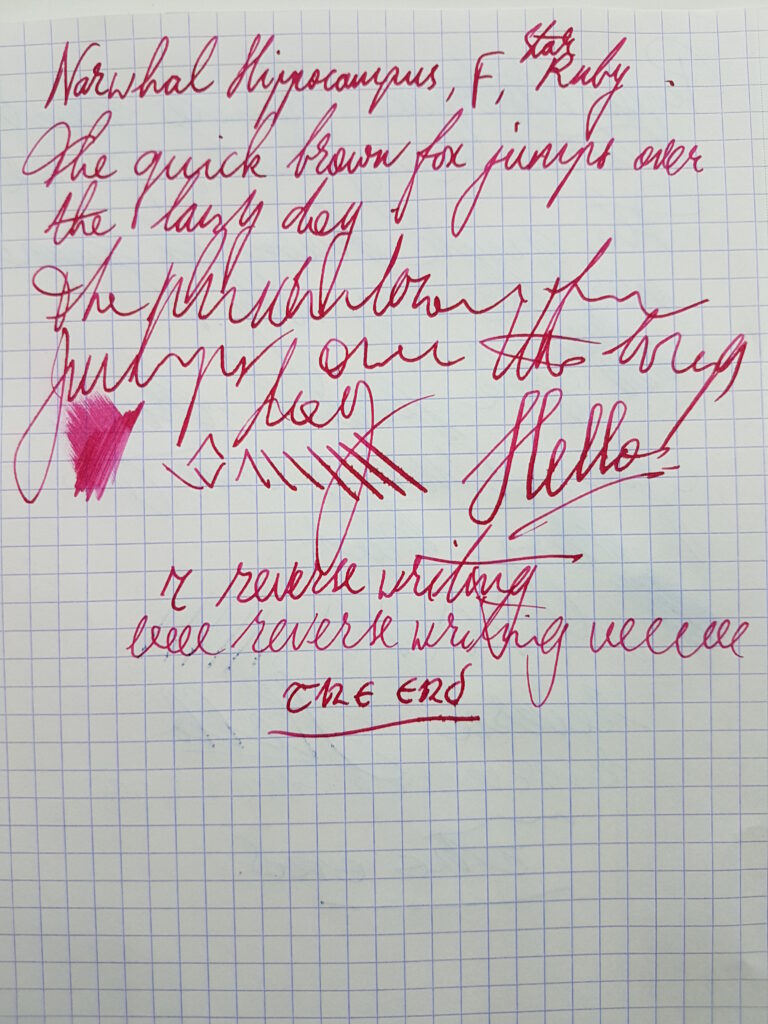 Narwhal Hippocampus, F, Star Ruby.
The quick brown fox jumps over
the lazy dog.
The
jumps over the
Hello!
r reverse writing
eeee reverse writing eeeeeee
THE END